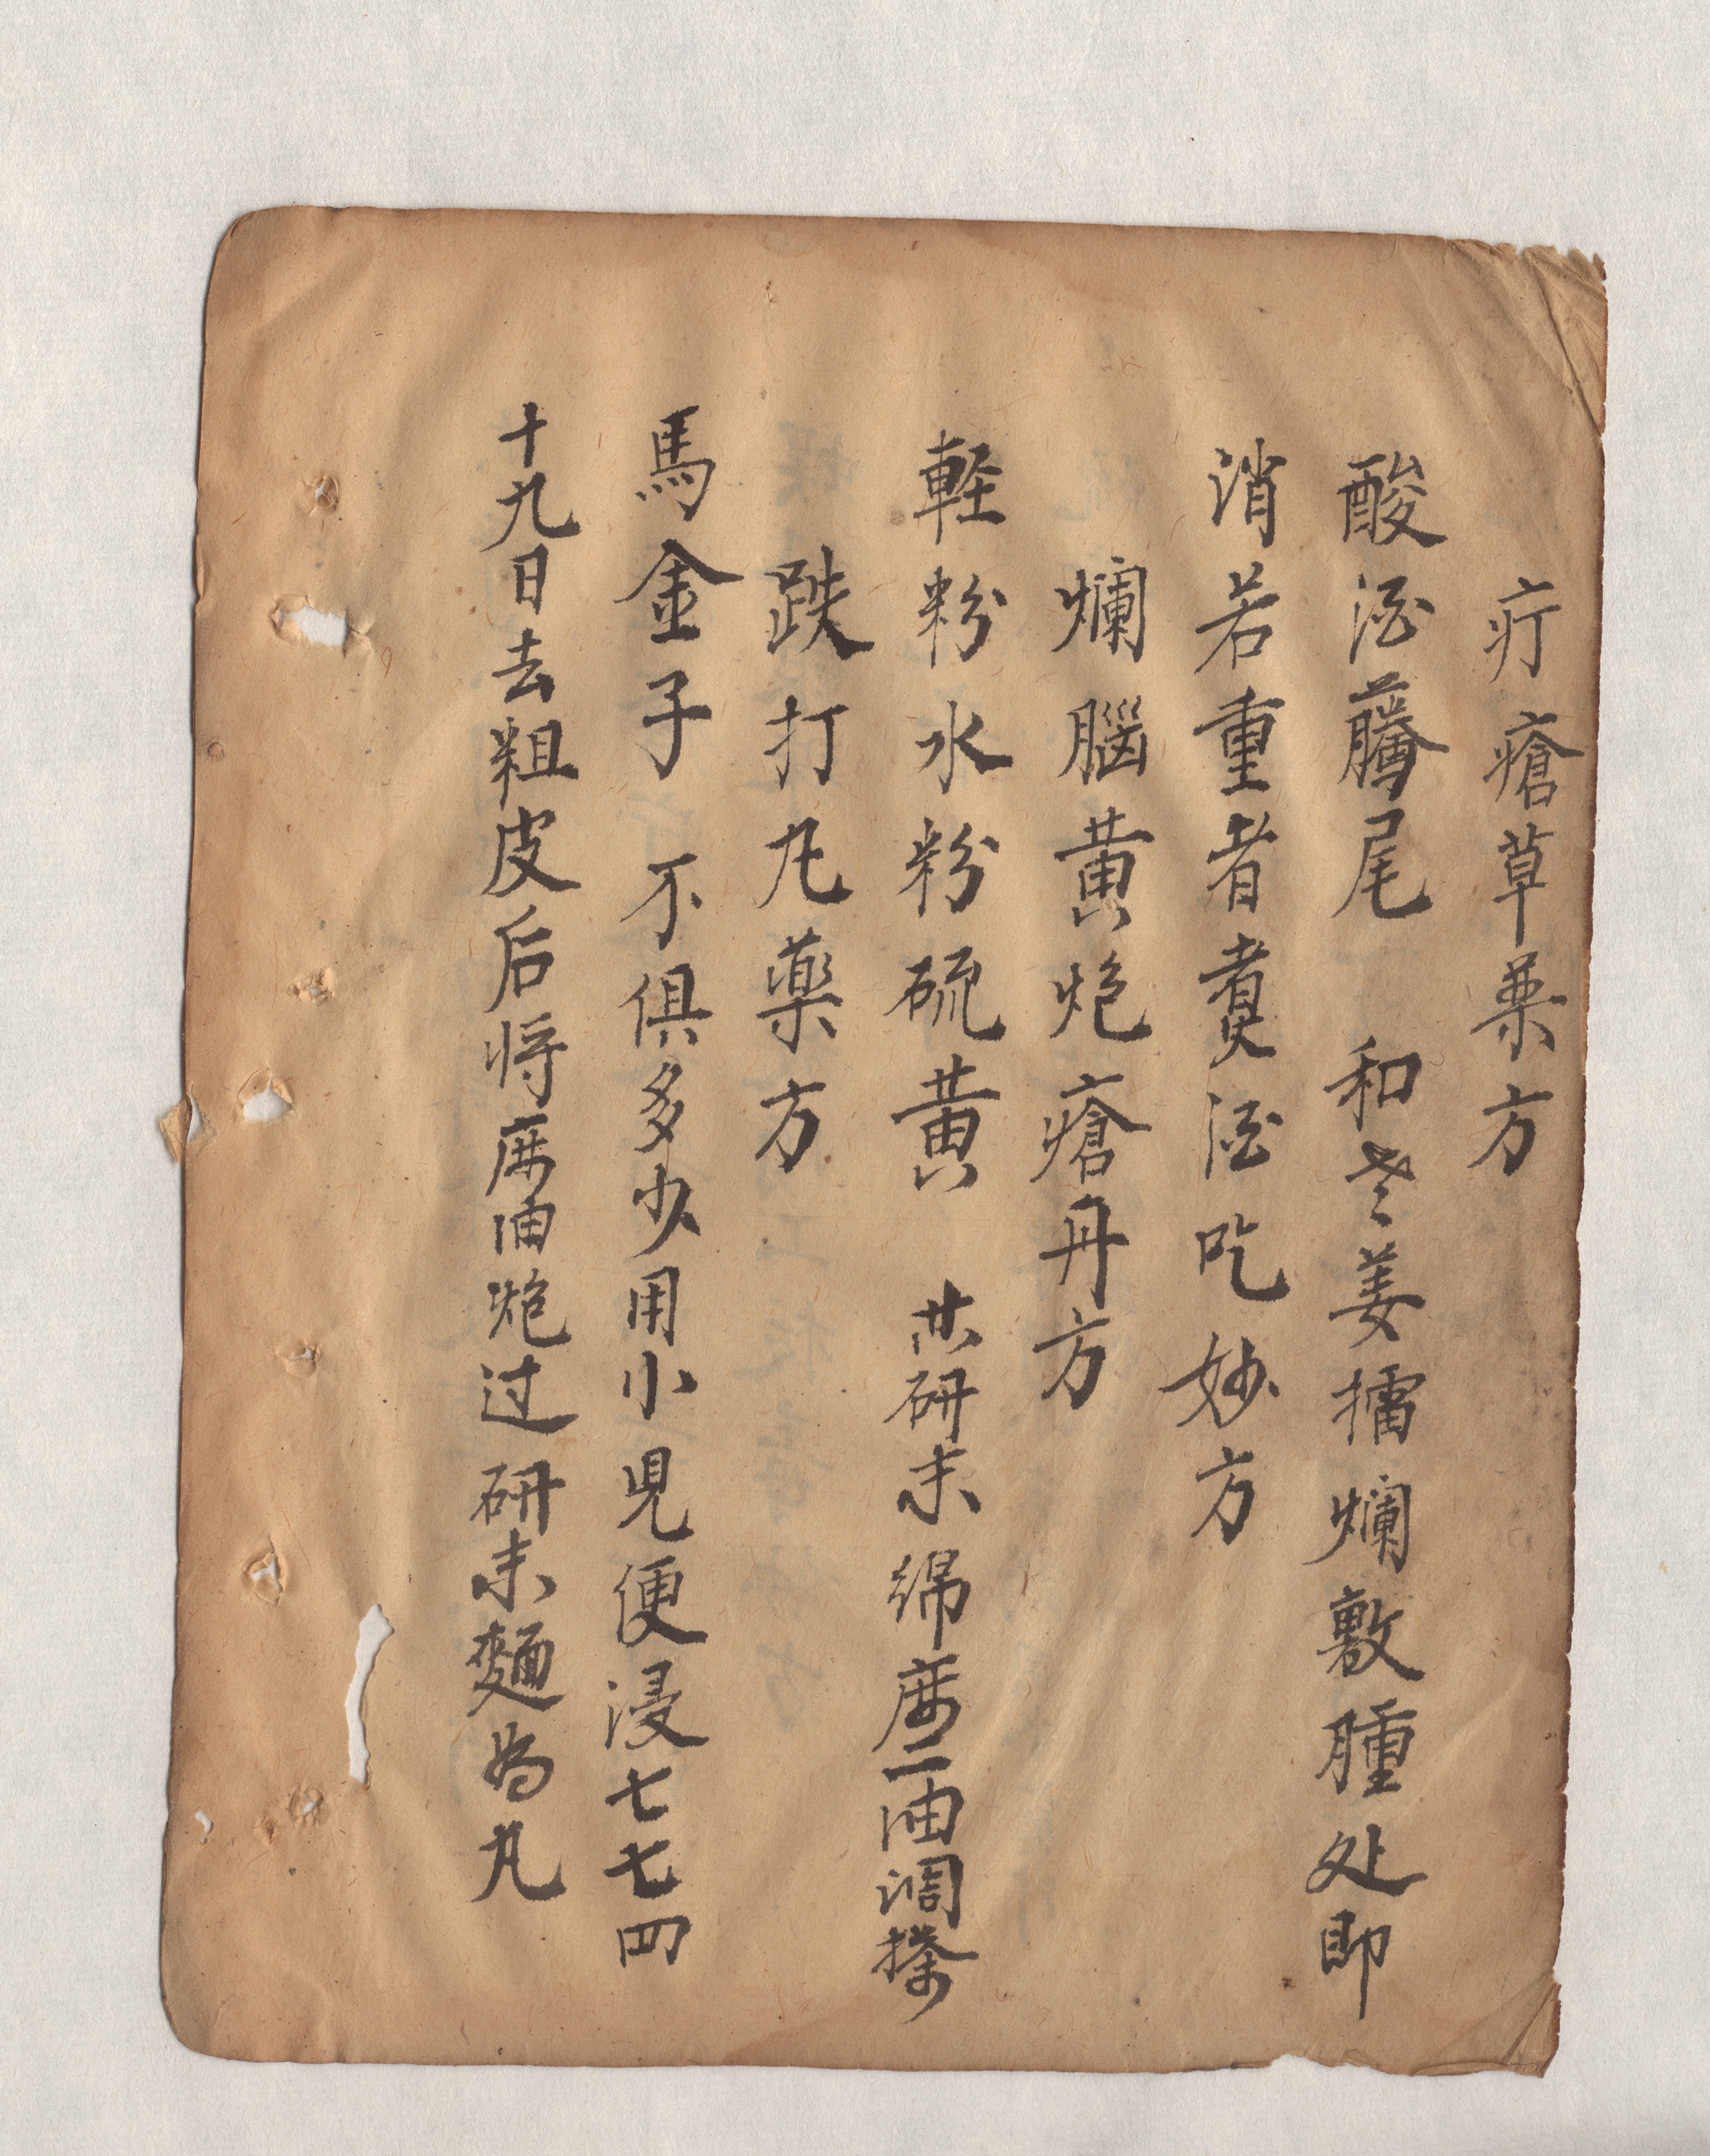 疔瘡草薬方
酸酒藤尾 和老姜擂爛敷腫处即
消若重者煑酒吃妙方
爛腦黃炮瘡丹方
軽粉水粉硫黄 共研末綿蔴二油調搽
跌打凡藥方
馬金子 不俱多少用小児便浸七七四
十九日去粗皮后将蔴油炮过研末麺為凡